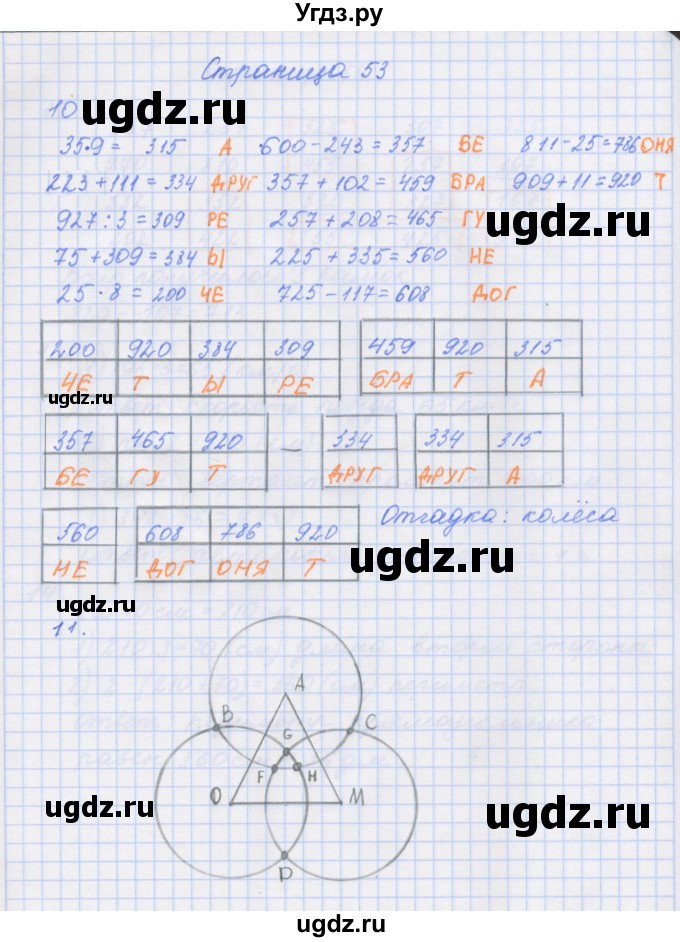 Угдз.ру
Страница 53
10
ugdz.ru
35·9 = 315 А ·600 - 243 = 357 БЕ 811 - 25 = 786 ОНЯ
223 + 111 = 334 ДРУГ 357 + 102 = 459 БРА 909 + 11 = 920 Т
927 : 3 = 309 РЕ 257 + 208 = 465 ГУ
ugdz.ru
75 + 309 = 384 Ы 225 + 335 = 560 НЕ
25 · 8 = 200 ЧЕ 725 - 117 = 608 ДОГ
200 920 384 309 459 920 315
ЧЕ Т Ы РЕ БРА Т А
ugdz.ru
357 465 920 — 334 334 315
БЕ ГУ Т ДРУГ ДРУГ А
ugdz.ru
560 608 786 920 Отгадка: колёса
НЕ ДОГ ОНЯ Т
ugdz.ru
11.
A
B C
G
F H
O M
ugdz.ru ugdz.ru
D
ugdz.ru